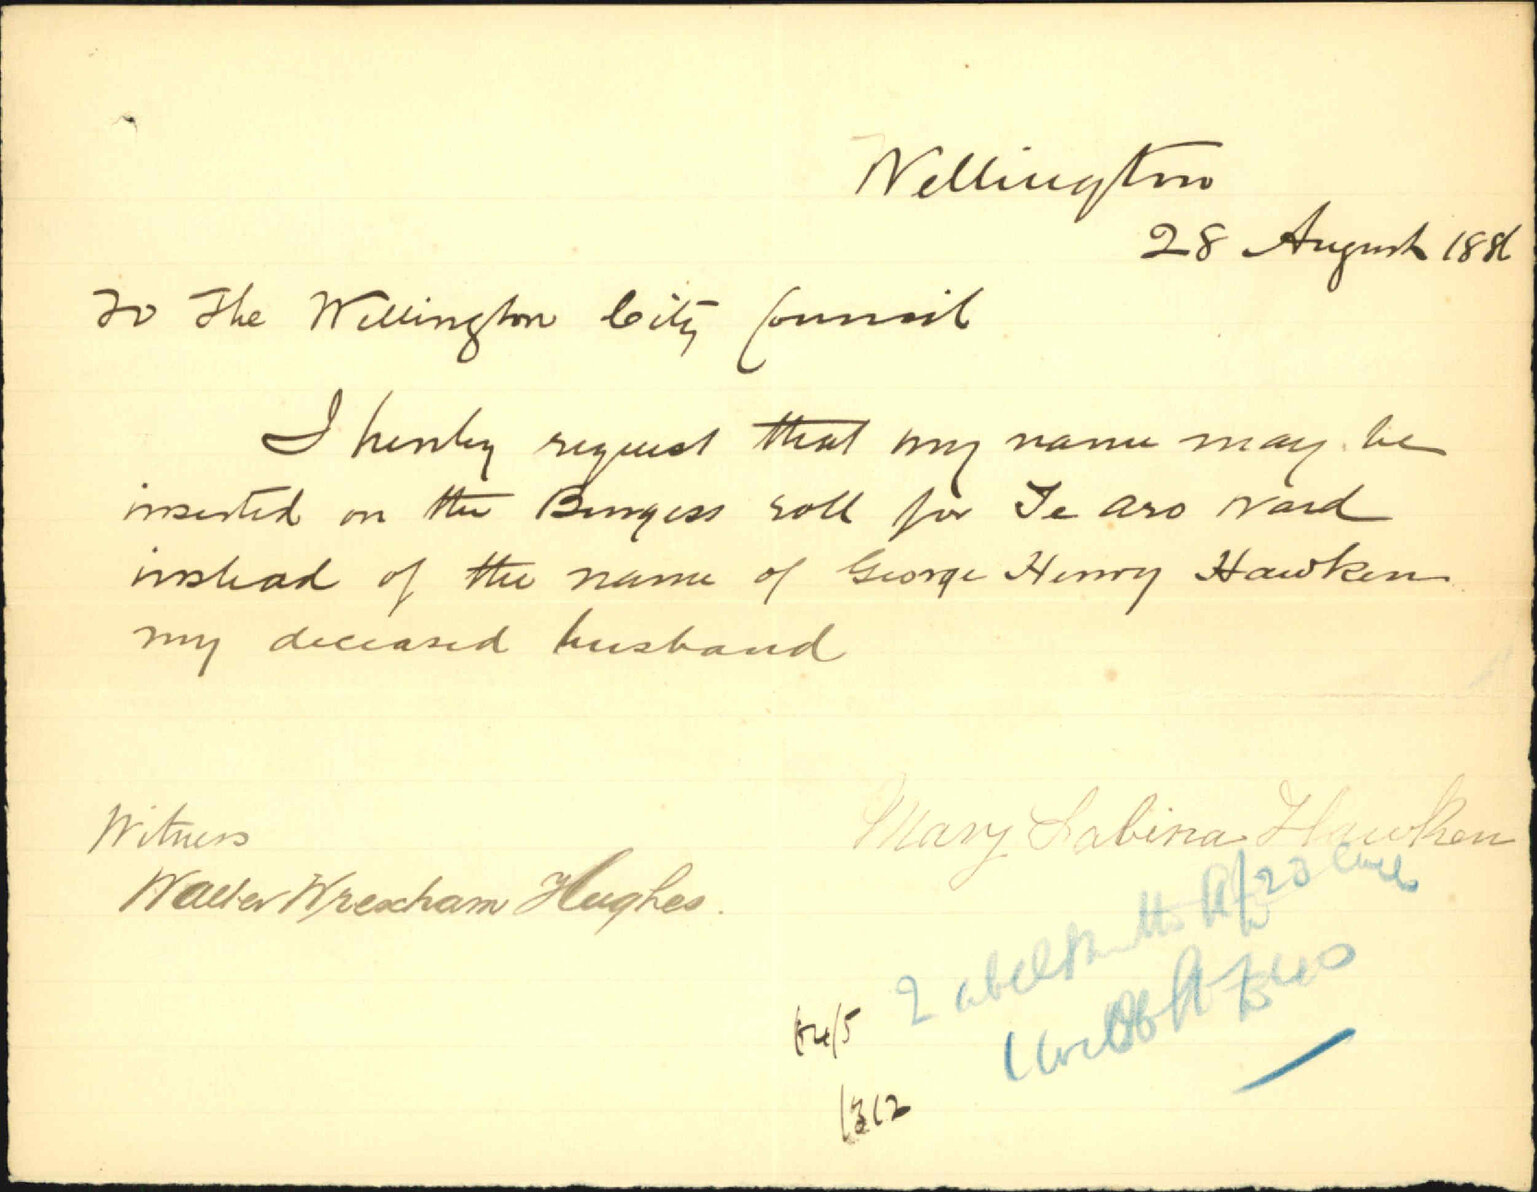 Wellington
28 August 1886
To The Wellington City Council
I hereby request that my name may be
inserted on the Burgess roll for Te Aro Ward
instead of the name of George Henry Hawken
my deceased husband
Mary Sabina Hawken
Witness
Walter Wrexham Hughes.
1312